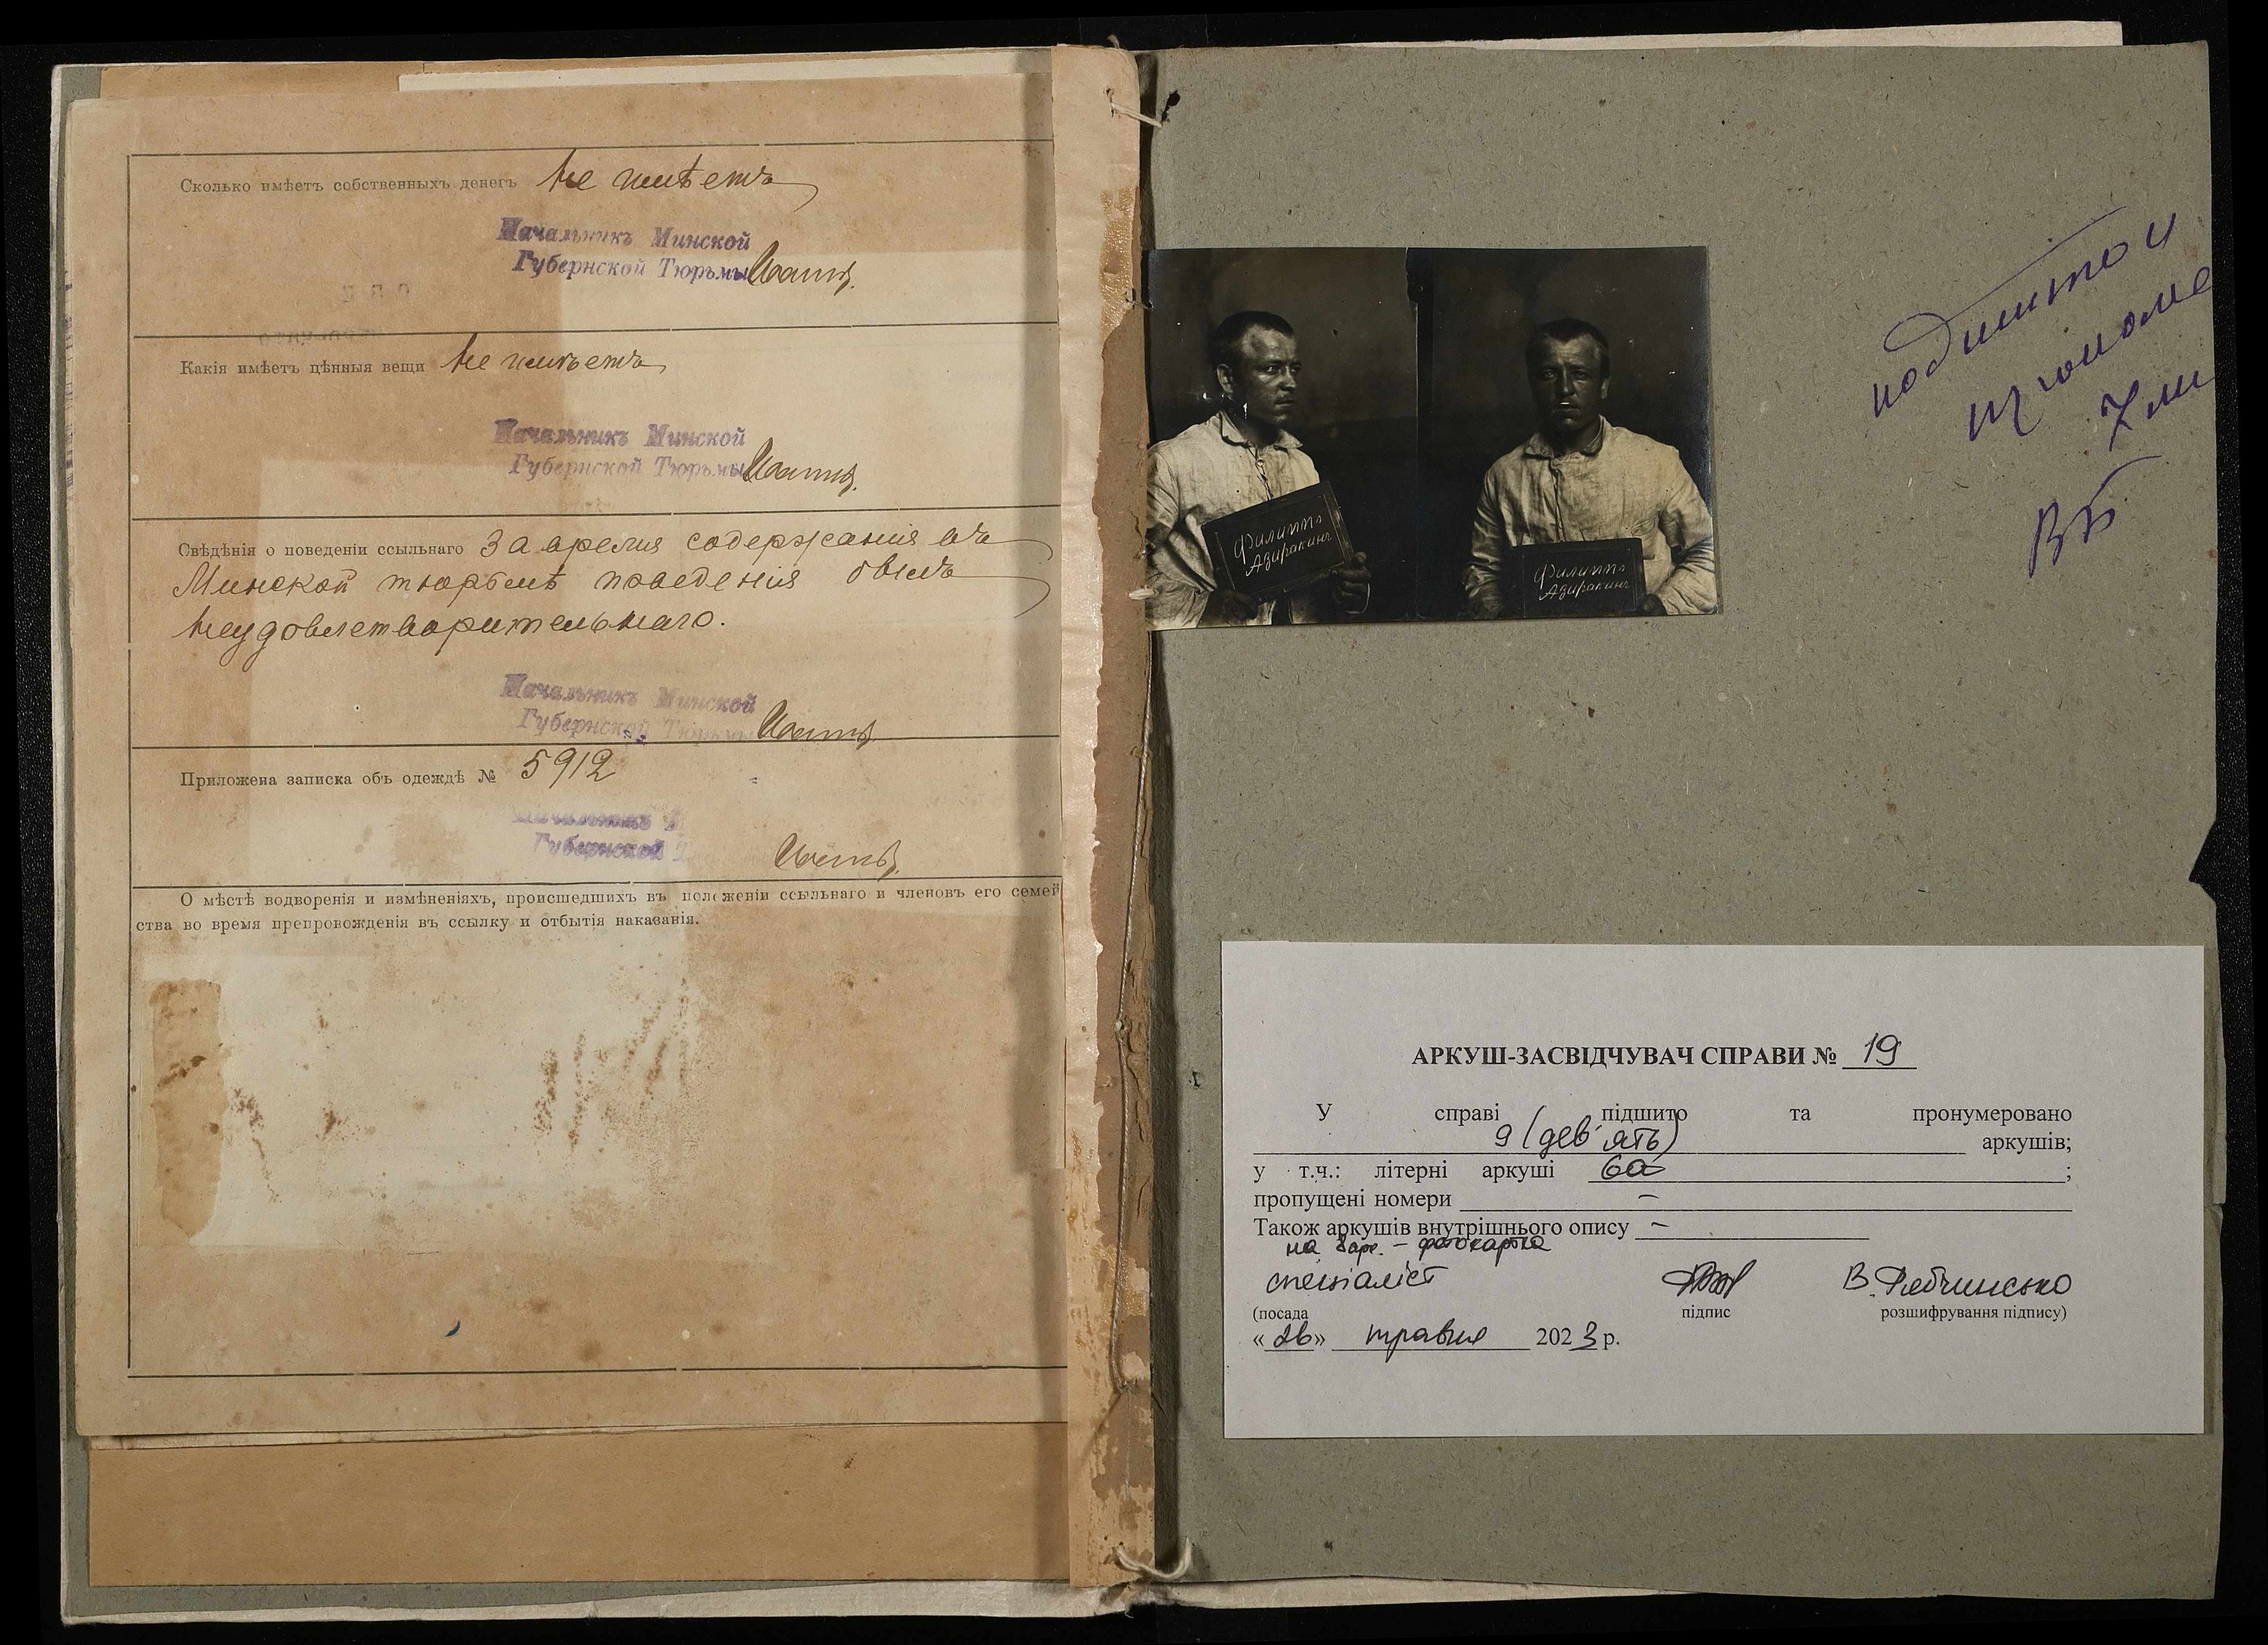 Сколько имѣетъ собственныхъ денегъ не имѣетъ
Начальникъ Минской
Губернской Тюрьмы
Какія имѣетъ цѣнныя вещи не имѣетъ
Начальникъ Минской
Губернской Тюрьмы
Свѣдѣнія о поведеніи ссыльнаго За время содержанія въ
Минской тюрьмѣ поведенія былъ
неудовлетворительнаго.
Начальникъ Минской
Губернской Тюрьмы
Приложена записка объ одеждѣ № 5912
Начальникъ
Губернской Т
О мѣстѣ водворенія и измѣненіяхъ, происшедшихъ въ положеніи ссыльнаго и членовъ его семей
ства во время препровожденія въ ссылку и отбытія наказанія.
Филиппъ
Азиракинъ
Филиппъ
Азиракинъ
АРКУШ-ЗАСВІДЧУВАЧ СПРАВИ № 19
У справі підшито та пронумеровано
9 (дев'ять) аркушів;
у т.ч.: літерні аркуші 6а ;
пропущені номери –
Також аркушів внутрішнього опису –
на – фотокартка
спеціаліст
(посада підпис розшифрування підпису)
«26» травня 2023 р.